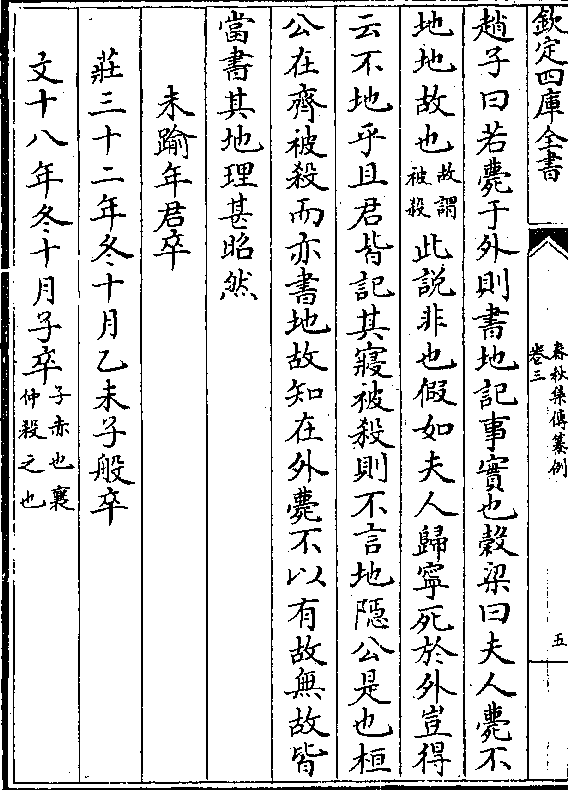 欽定四庫全書
春秋集傳纂例
卷三
五
趙子曰若薨于外則書地記事實也穀梁曰夫人薨不
地地故也故謂被殺此說非也假如夫人歸寧死於外豈得
云不地乎且君皆記其寢被殺則不言地隱公是也桓
公在齊被殺而亦書地故知在外薨不以有故無故皆
當書其地理甚昭然
未踰年君卒
莊三十二年冬十月乙未子般卒
文十八年冬十月子卒子赤也襄仲殺之也